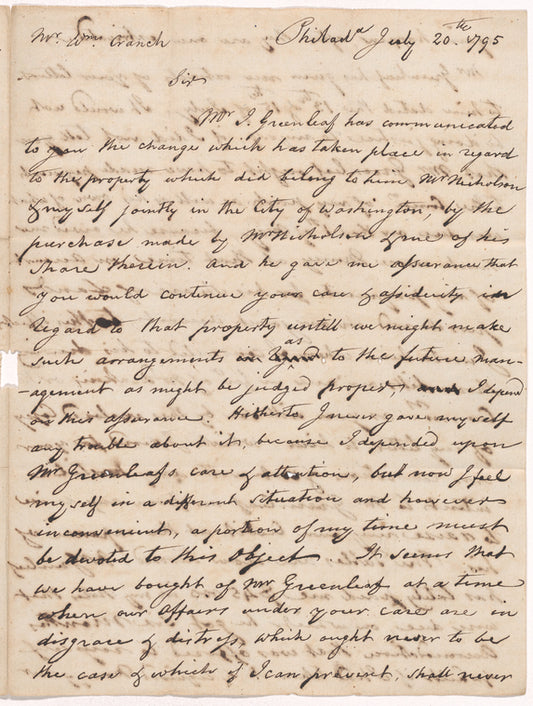 Mr. Wm. Cranch Philada July 20th. 1795
Sir
Mr J. Greenleaf has communicated
to you the change which has taken place in regard
to the property which did belong to him, Mr Nicholson
& myself jointly in the City of Washington, by the
purchase made by Mr Nicholson & me of his
share therein. And he gave me assurance that
you would continue your care & assiduity in
regard to that property untill we might make
such arrangements as to the future man-
-agement as might be judged proper, I depend
on this assurance. Hitherto I never gave myself
any trouble about it, because I depended upon
Mr. Greenleafs care & attention, but now I feel
myself in a different situation and however
inconvenient, a portion of my time must
be devoted to this Object. It seems that
we have bought of Mr Greenleaf at a time
when our affairs under your care are in
disgrace & distress, which ought never to be
the case & which if I can prevent, shall never